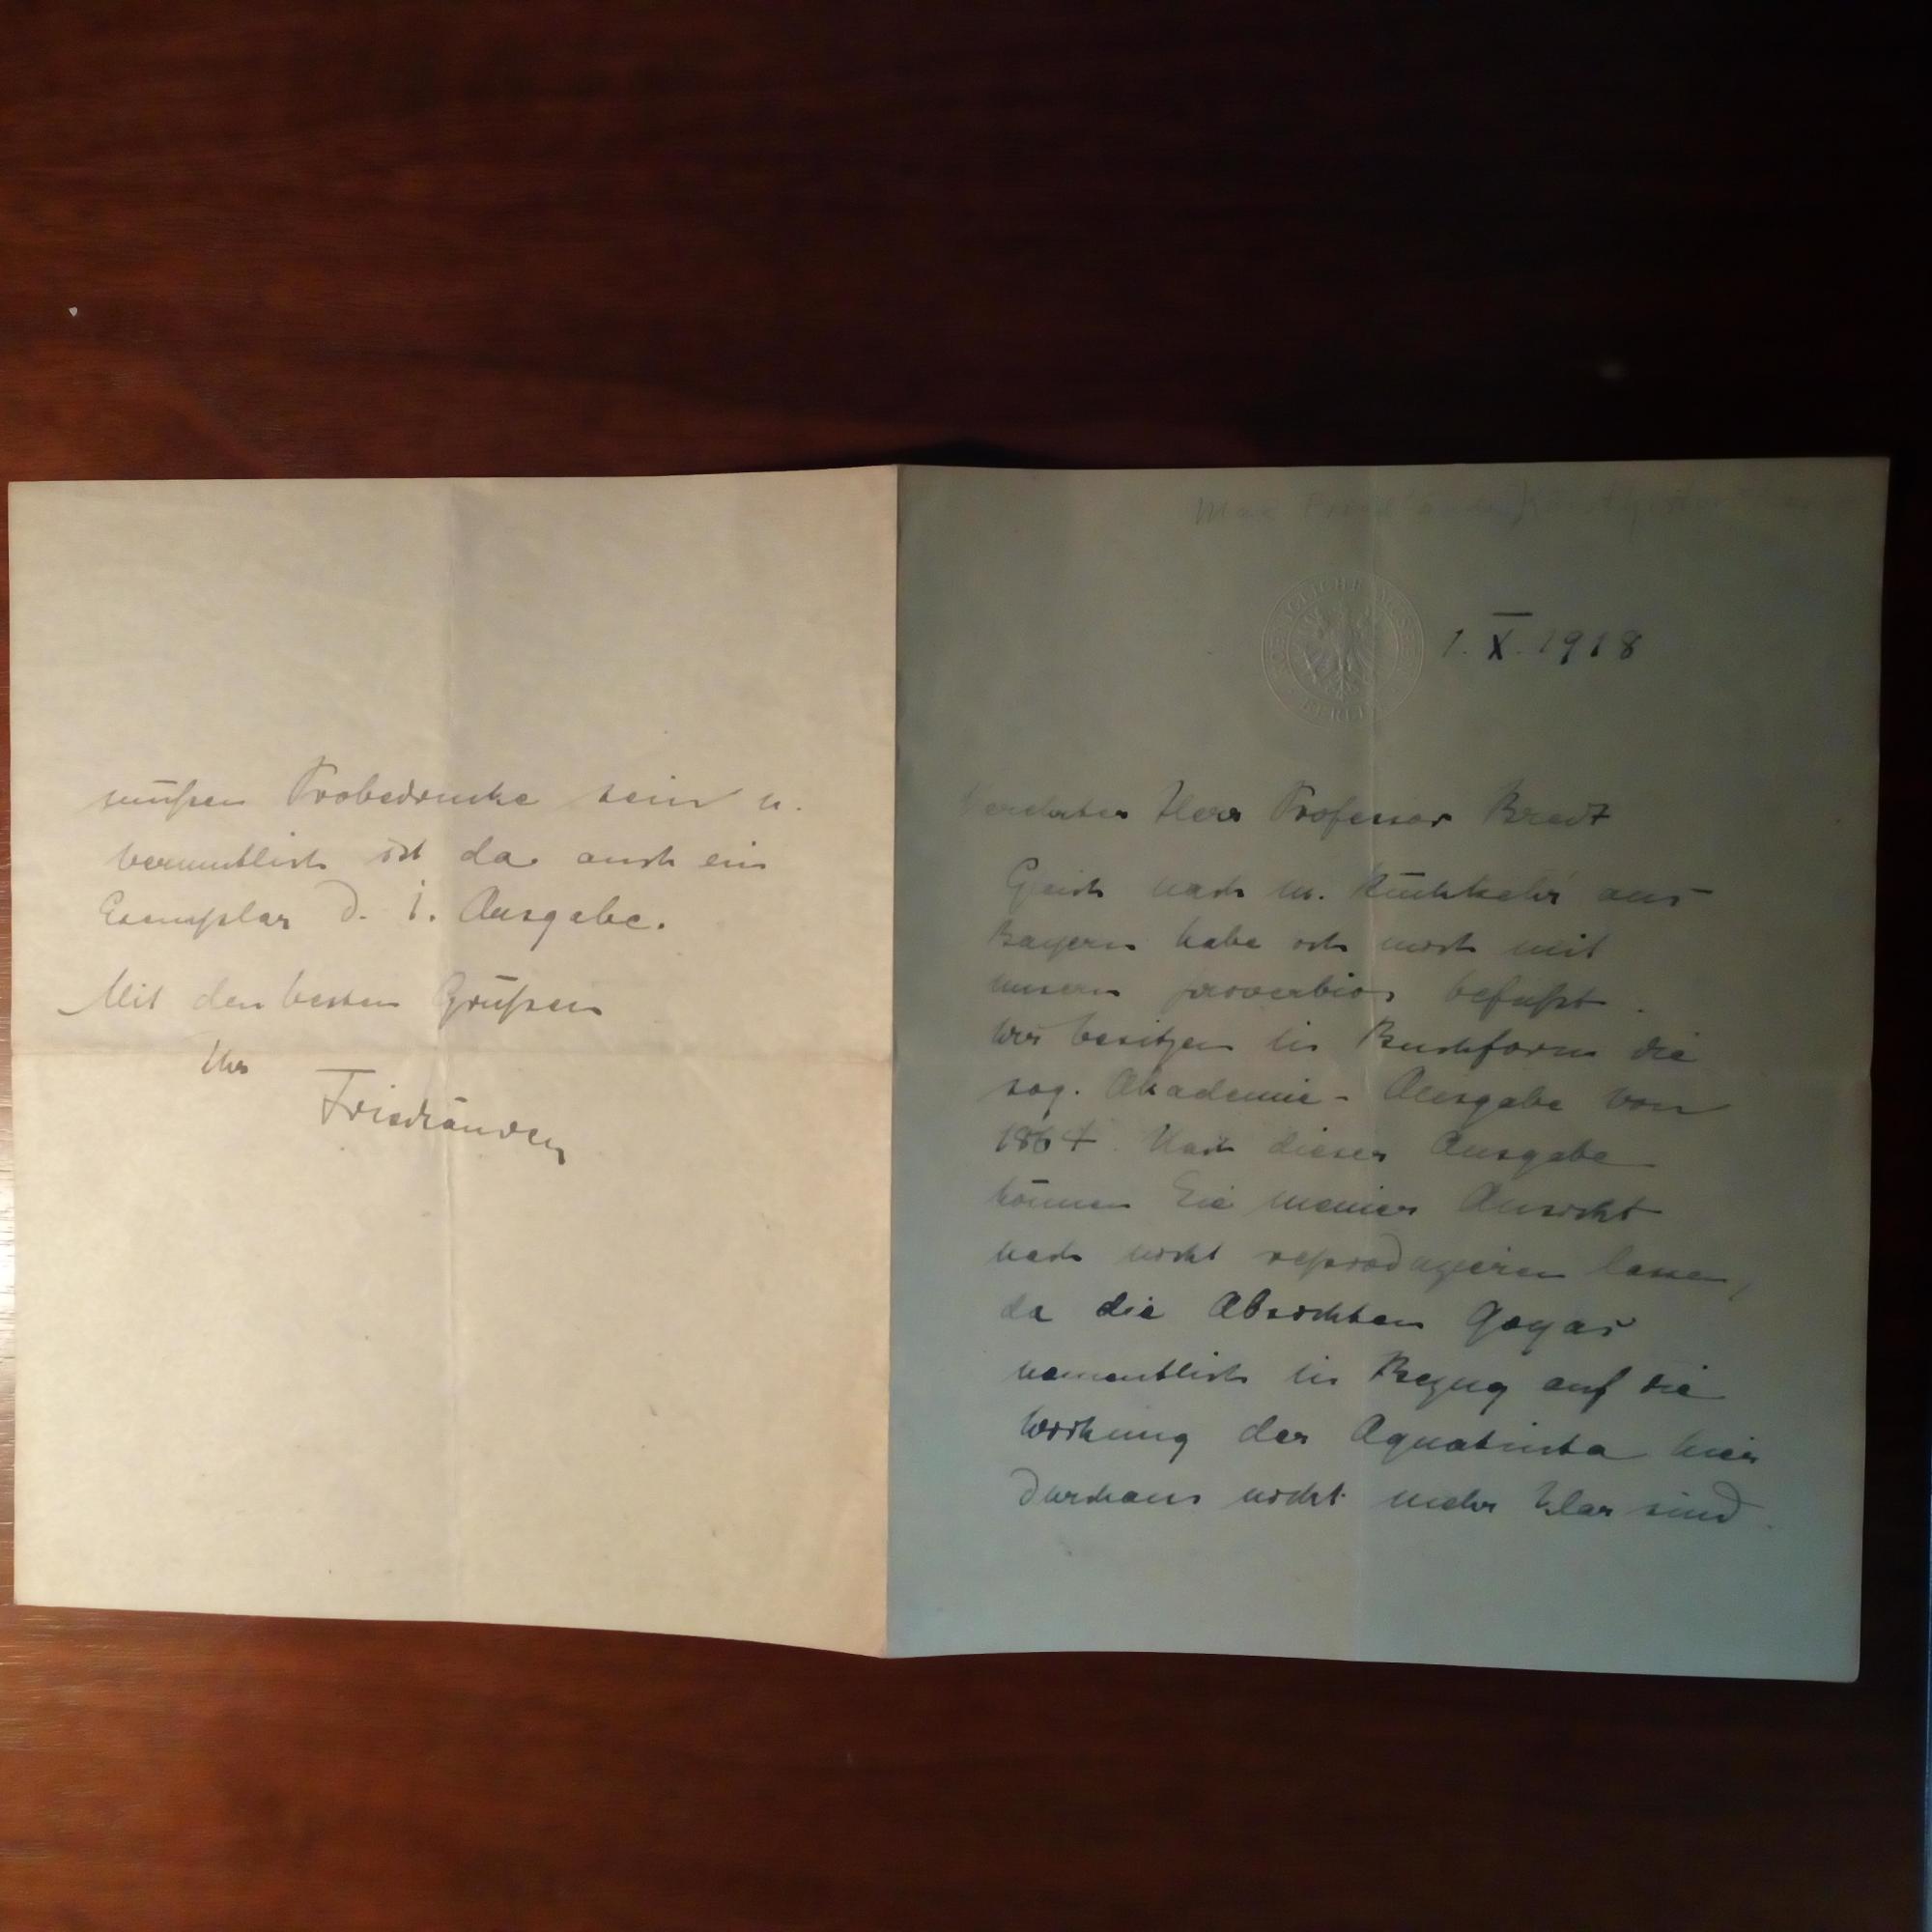 Max Friedländer
KOENIGLICHE MUSEEN
BERLIN
1. X. 1918
Verehrter Herr Professor Bredt
Gleich nach m. Rückkehr aus
Bayern habe ich mich mit
unsern proverbios befaßt.
Wir besitzen in Buchform die
sog. Akademie-Ausgabe von
1864. Nach dieser Ausgabe
können Sie meiner Ansicht
nach nicht reproduzieren lassen,
da die Absichten Goyas
namentlich in Bezug auf die
Wirkung der Aquatinta hier
durchaus nicht mehr klar sind.
müßen Probedrucke sein u.
vermutlich ist da auch ein
Exemplar d. 1. Ausgabe.
Mit den besten Grüßen
Ihr
Friedländer